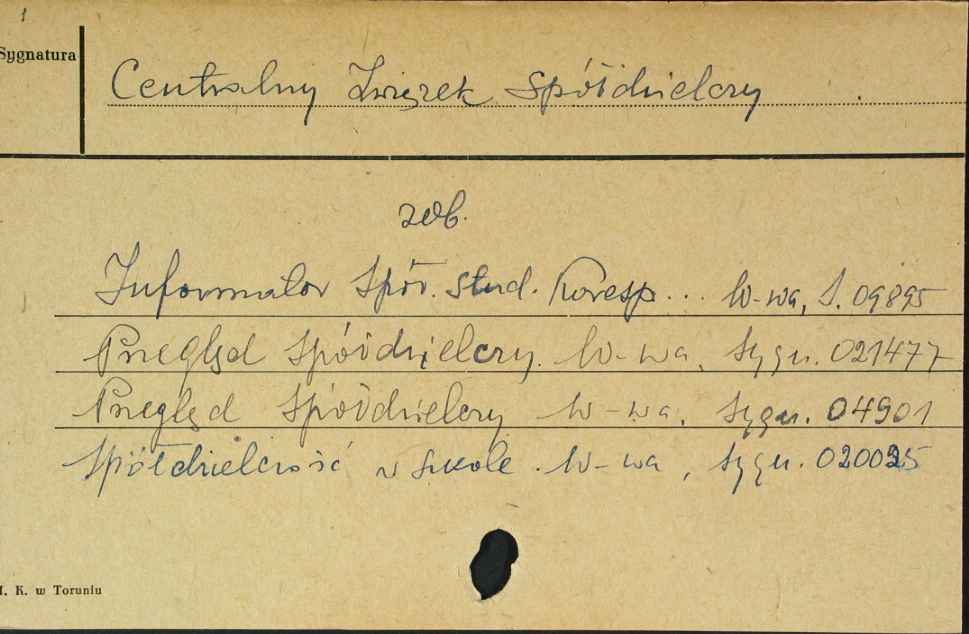 1
Sygnatura
Centralny Związek Spółdzielczy
zob.
Informator Spół. Stud. Koresp... W-wa, S. 09895
Przegląd Spółdzielczy. W-wa, Sygn. 021477
Przegląd Spółdzielczy W-wa, Sygn. 04901
Spółdzielczość w szkole. W-wa, Sygn. 020025
I. K. w Toruniu